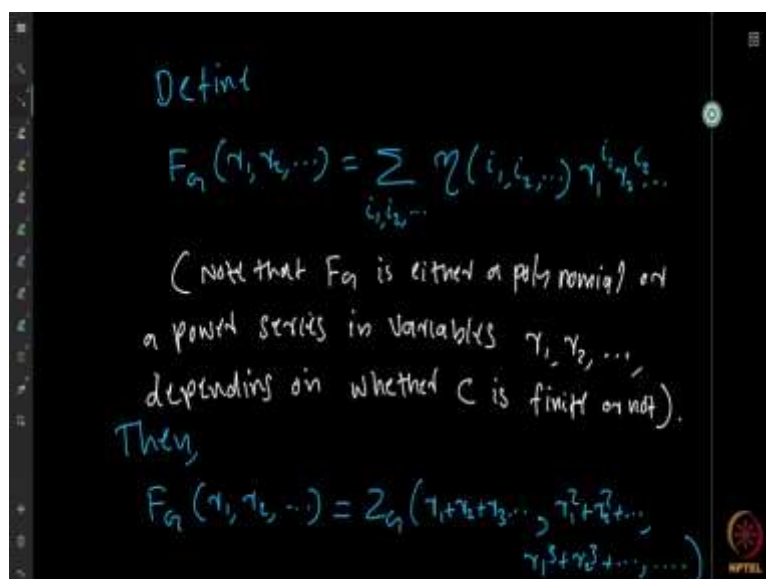 Define
F_G (r_1, r_2, ...) = ∑_{i_1, i_2, ...} η(i_1, i_2, ...) r_1^{i_1} r_2^{i_2} ...
(Note that F_G is either a polynomial or
a power series in variables r_1, r_2, ...,
depending on whether C is finite or not).
Then,
F_G (r_1, r_2, ...) = Z_G (r_1+r_2+r_3..., r_1^2+r_2^2+...,
r_1^3+r_2^3+..., ....)
NPTEL